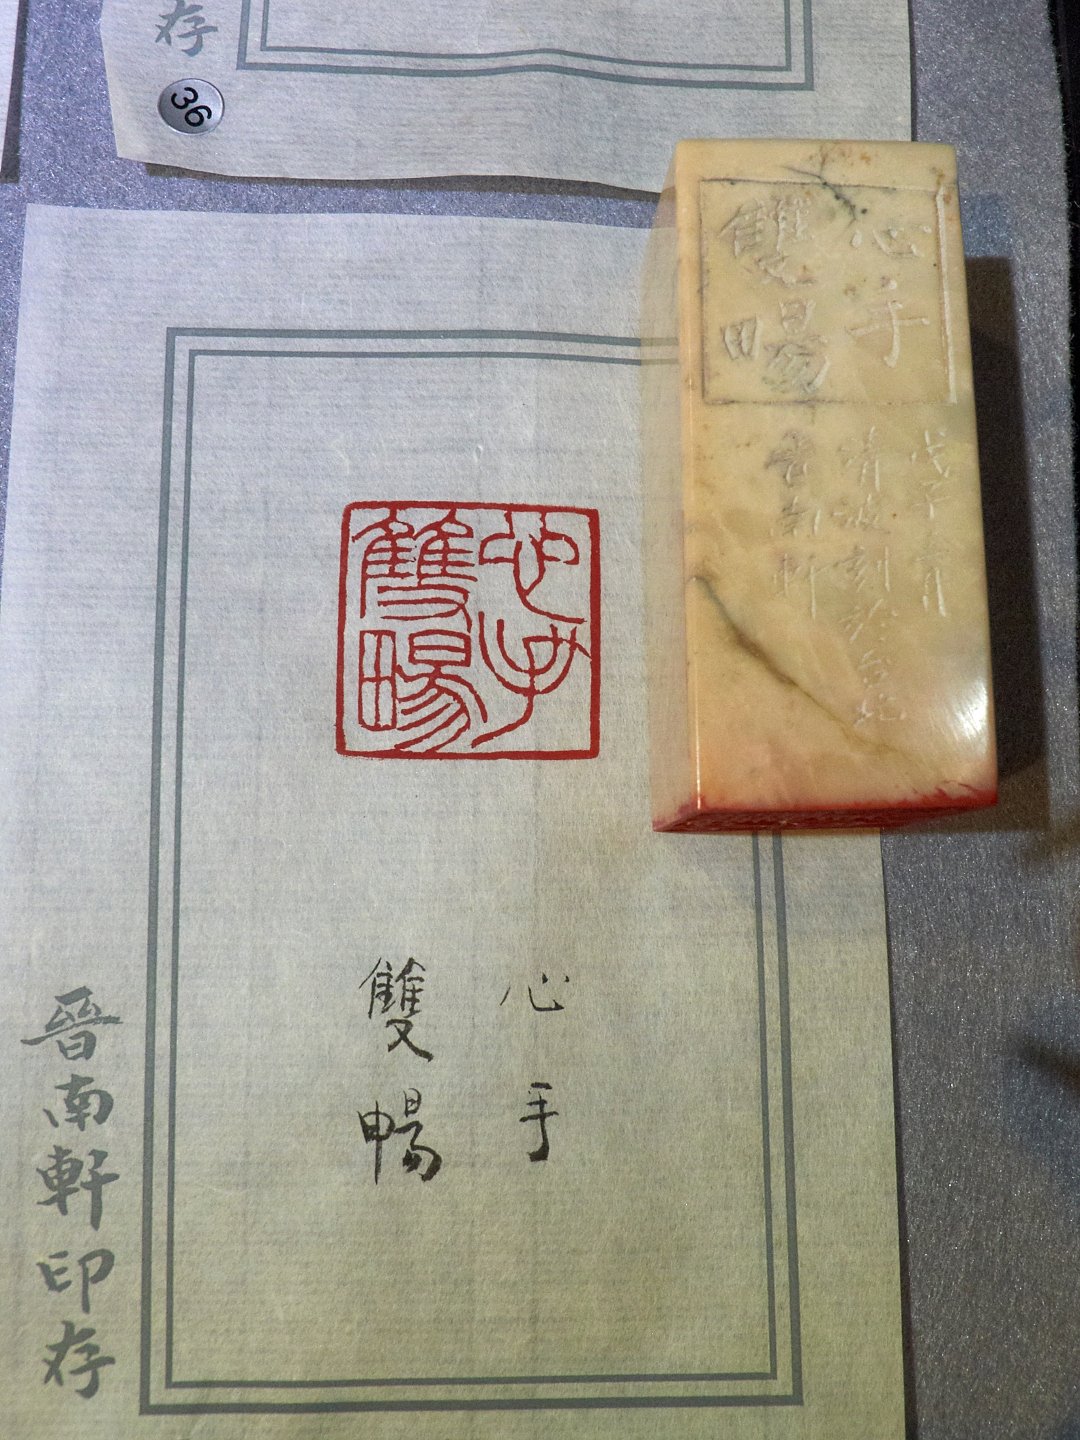 存
36
心手
雙暢
戊子六月
清波刻於台北
晉南軒
心手
雙暢
心手
雙暢
晉南軒印存